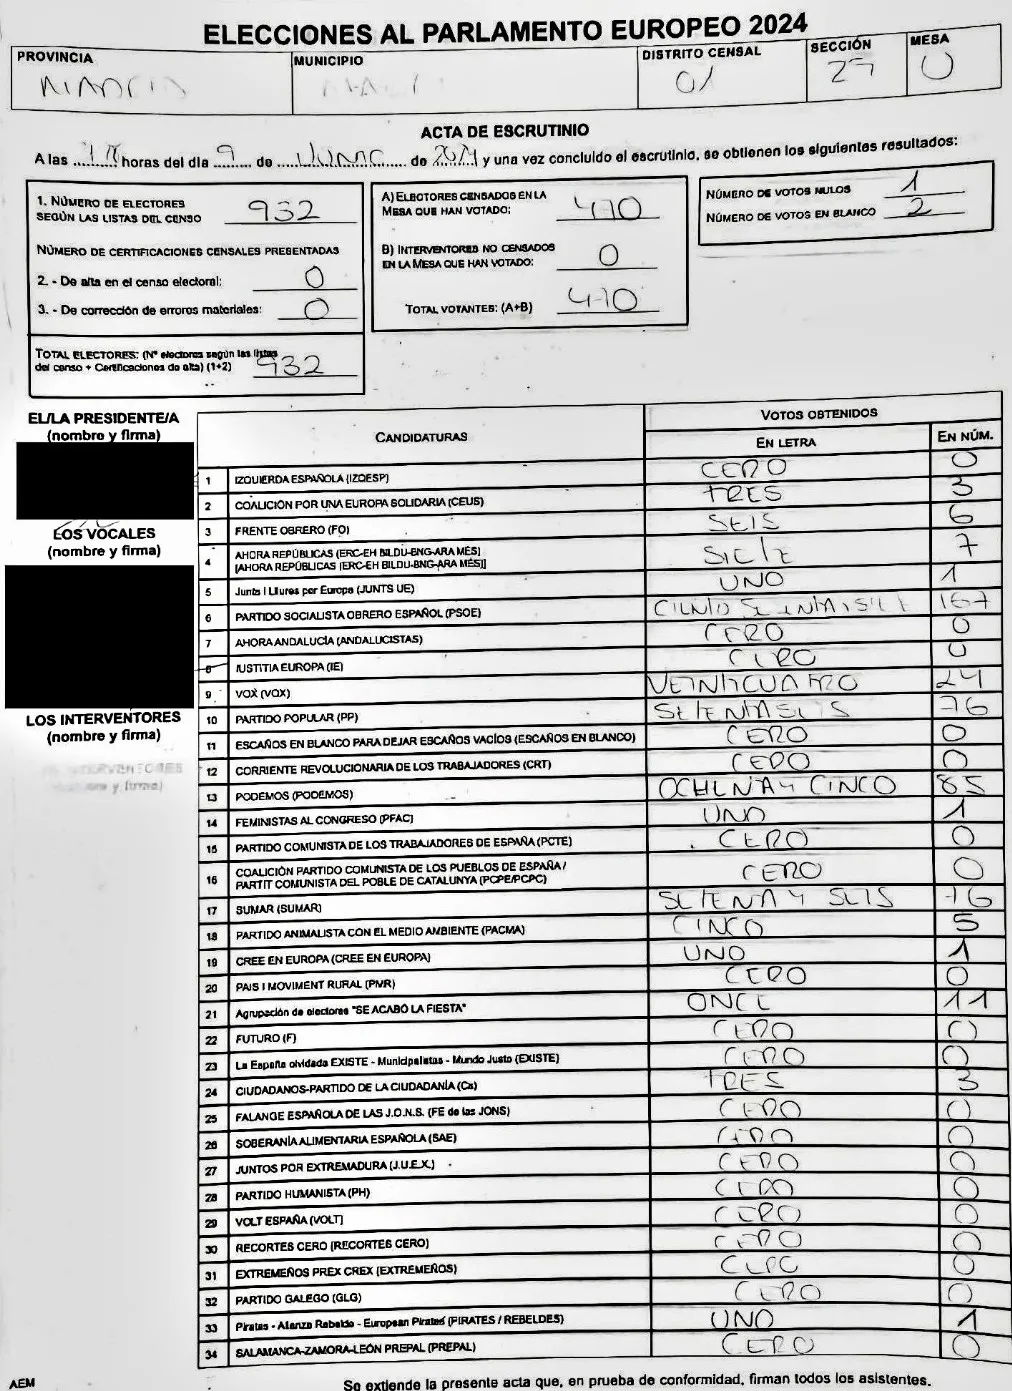 ELECCIONES AL PARLAMENTO EUROPEO 2024
PROVINCIA MUNICIPIO DISTRITO CENSAL 01 SECCIÓN MESA U
ACTA DE ESCRUTINIO
A las horas del día 9 de de y una vez concluido el escrutinio, se obtienen los siguientes resultados:
1. NÚMERO DE ELECTORES
SEGÚN LAS LISTAS DEL CENSO 932
NÚMERO DE CERTIFICACIONES CENSALES PRESENTADAS
2. - De alta en el censo electoral: 0
3. - De corrección de errores materiales: 0
TOTAL ELECTORES: (Nº electores según las listas
del censo + Certificaciones de alta) (1+2) 932
A) ELECTORES CENSADOS EN LA
MESA QUE HAN VOTADO: 470
B) INTERVENTORES NO CENSADOS
EN LA MESA QUE HAN VOTADO: 0
TOTAL VOTANTES: (A+B) 470
NÚMERO DE VOTOS NULOS 1
NÚMERO DE VOTOS EN BLANCO 2
EL/LA PRESIDENTE/A
(nombre y firma)
LOS VOCALES
(nombre y firma)
LOS INTERVENTORES
(nombre y firma)
CANDIDATURAS VOTOS OBTENIDOS
EN LETRA EN NÚM.
1 IZQUIERDA ESPAÑOLA (IZQESP) CERO 0
2 COALICIÓN POR UNA EUROPA SOLIDARIA (CEUS) TRES 3
3 FRENTE OBRERO (FO) SEIS 6
4 AHORA REPÚBLICAS (ERC-EH BILDU-BNG-ARA MÉS) SIETE 7
[AHORA REPÚBLICAS (ERC-EH BILDU-BNG-ARA MÉS)]
5 Junts i Lliures per Europa (JUNTS UE) UNO 1
6 PARTIDO SOCIALISTA OBRERO ESPAÑOL (PSOE) 167
7 AHORA ANDALUCÍA (ANDALUCISTAS) CERO 0
8 IUSTITIA EUROPA (IE) CERO 0
9 VOX (VOX) VEINTICUATRO 24
10 PARTIDO POPULAR (PP) 76
11 ESCAÑOS EN BLANCO PARA DEJAR ESCAÑOS VACÍOS (ESCAÑOS EN BLANCO) CERO 0
12 CORRIENTE REVOLUCIONARIA DE LOS TRABAJADORES (CRT) CERO 0
13 PODEMOS (PODEMOS) OCHENTA Y CINCO 85
14 FEMINISTAS AL CONGRESO (PFAC) UNO 1
15 PARTIDO COMUNISTA DE LOS TRABAJADORES DE ESPAÑA (PCTE) CERO 0
16 COALICIÓN PARTIDO COMUNISTA DE LOS PUEBLOS DE ESPAÑA / CERO 0
PARTIT COMUNISTA DEL POBLE DE CATALUNYA (PCPE/PCPC)
17 SUMAR (SUMAR) SETENTA Y SEIS 76
18 PARTIDO ANIMALISTA CON EL MEDIO AMBIENTE (PACMA) CINCO 5
19 CREE EN EUROPA (CREE EN EUROPA) UNO 1
20 PAIS I MOVIMENT RURAL (PMR) CERO 0
21 Agrupación de electores "SE ACABÓ LA FIESTA" ONCE 11
22 FUTURO (F) CERO 0
23 La España olvidada EXISTE - Municipalistas - Mundo Justo (EXISTE) CERO 0
24 CIUDADANOS-PARTIDO DE LA CIUDADANÍA (Cs) TRES 3
25 FALANGE ESPAÑOLA DE LAS J.O.N.S. (FE de las JONS) CERO 0
26 SOBERANÍA ALIMENTARIA ESPAÑOLA (SAE) CERO 0
27 JUNTOS POR EXTREMADURA (J.U.EX.) CERO 0
28 PARTIDO HUMANISTA (PH) CERO 0
29 VOLT ESPAÑA (VOLT) CERO 0
30 RECORTES CERO (RECORTES CERO) CERO 0
31 EXTREMEÑOS PREX CREX (EXTREMEÑOS) CERO 0
32 PARTIDO GALEGO (GLG) CERO 0
33 Piratas - Alianza Rebelde - European Pirates (PIRATES / REBELDES) UNO 1
34 SALAMANCA-ZAMORA-LEÓN PREPAL (PREPAL) CERO 0
AEM Se extiende la presente acta que, en prueba de conformidad, firman todos los asistentes.